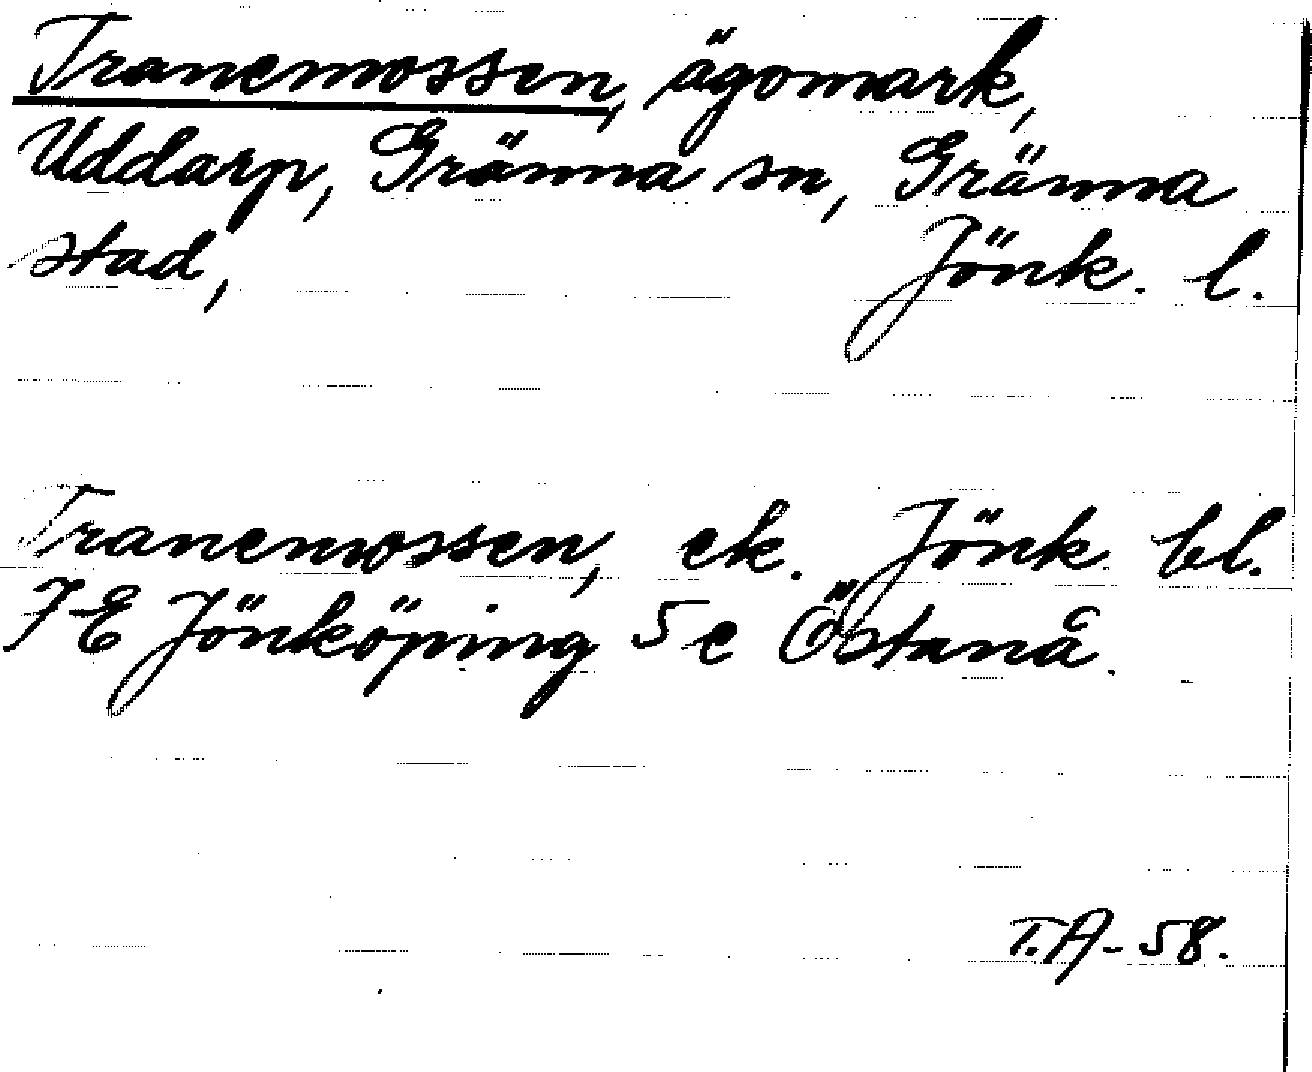 Tranemossen, ägomark,
Uddarp, Gränna sn, Gränna
stad, Jönk. l.
Tranemossen, ek. Jönk bl.
7E Jönköping 5e Östanå.
T.A-58.